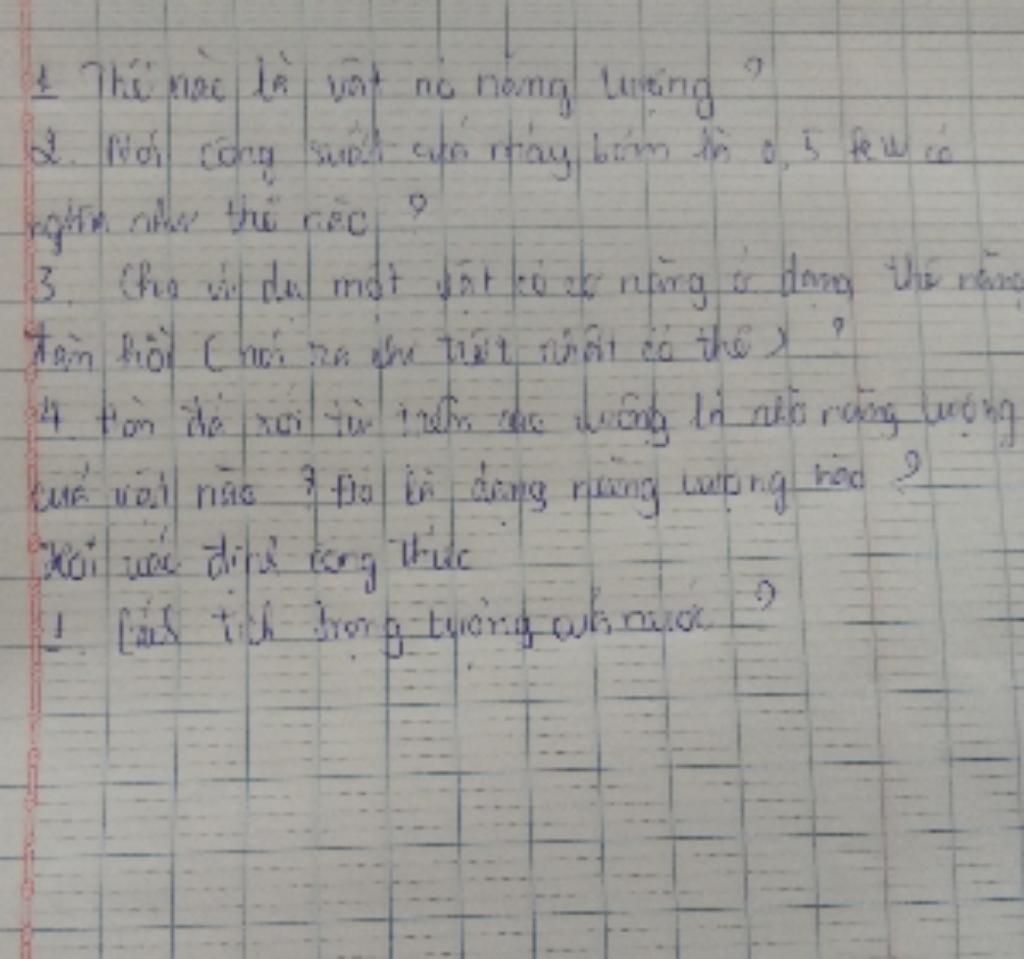 1 Thế nào là vật có năng lượng ?
2. Nói công suất của máy bơm là 0,5 kW có
nghĩa như thế nào ?
3. Cho ví dụ một vật có cơ năng ở dạng thế năng
đàn hồi (nói ra chi tiết nhất có thể) ?
4 Hòn đá rơi từ trên cao xuống là nhờ năng lượng
của vật nào ? Đó là dạng năng lượng nào ?
Hỏi xác định công thức
1 Cách tích trọng lượng của nước ?